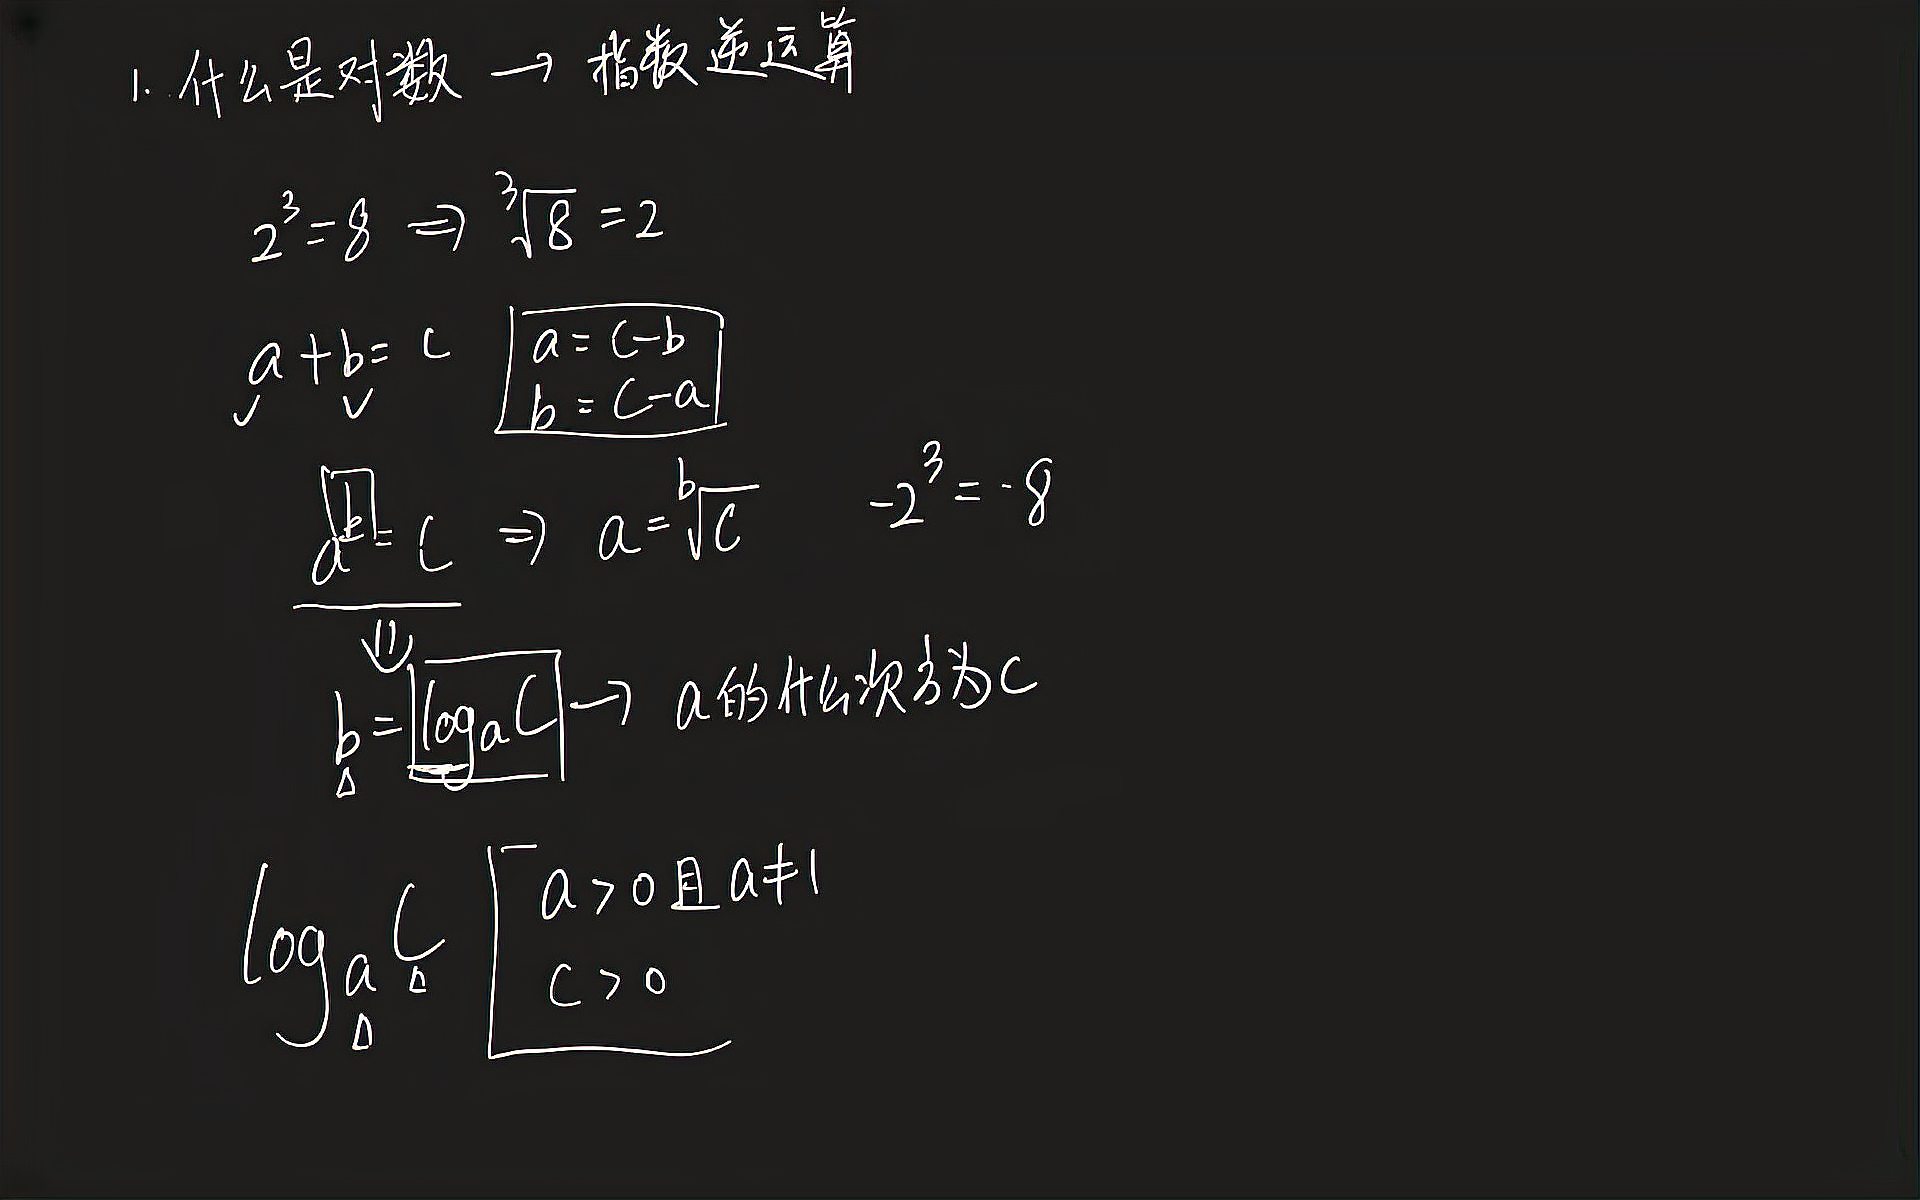 1. 什么是对数 → 指数逆运算
2³=8 ⇒ ³√8 =2
a+b=c
a=c-b
b=c-a
aᵇ=c ⇒ a=ᵇ√c
-2³=-8
⇓
b=logₐC → a的什么次方为c
logₐC
a>0且a≠1
c>0